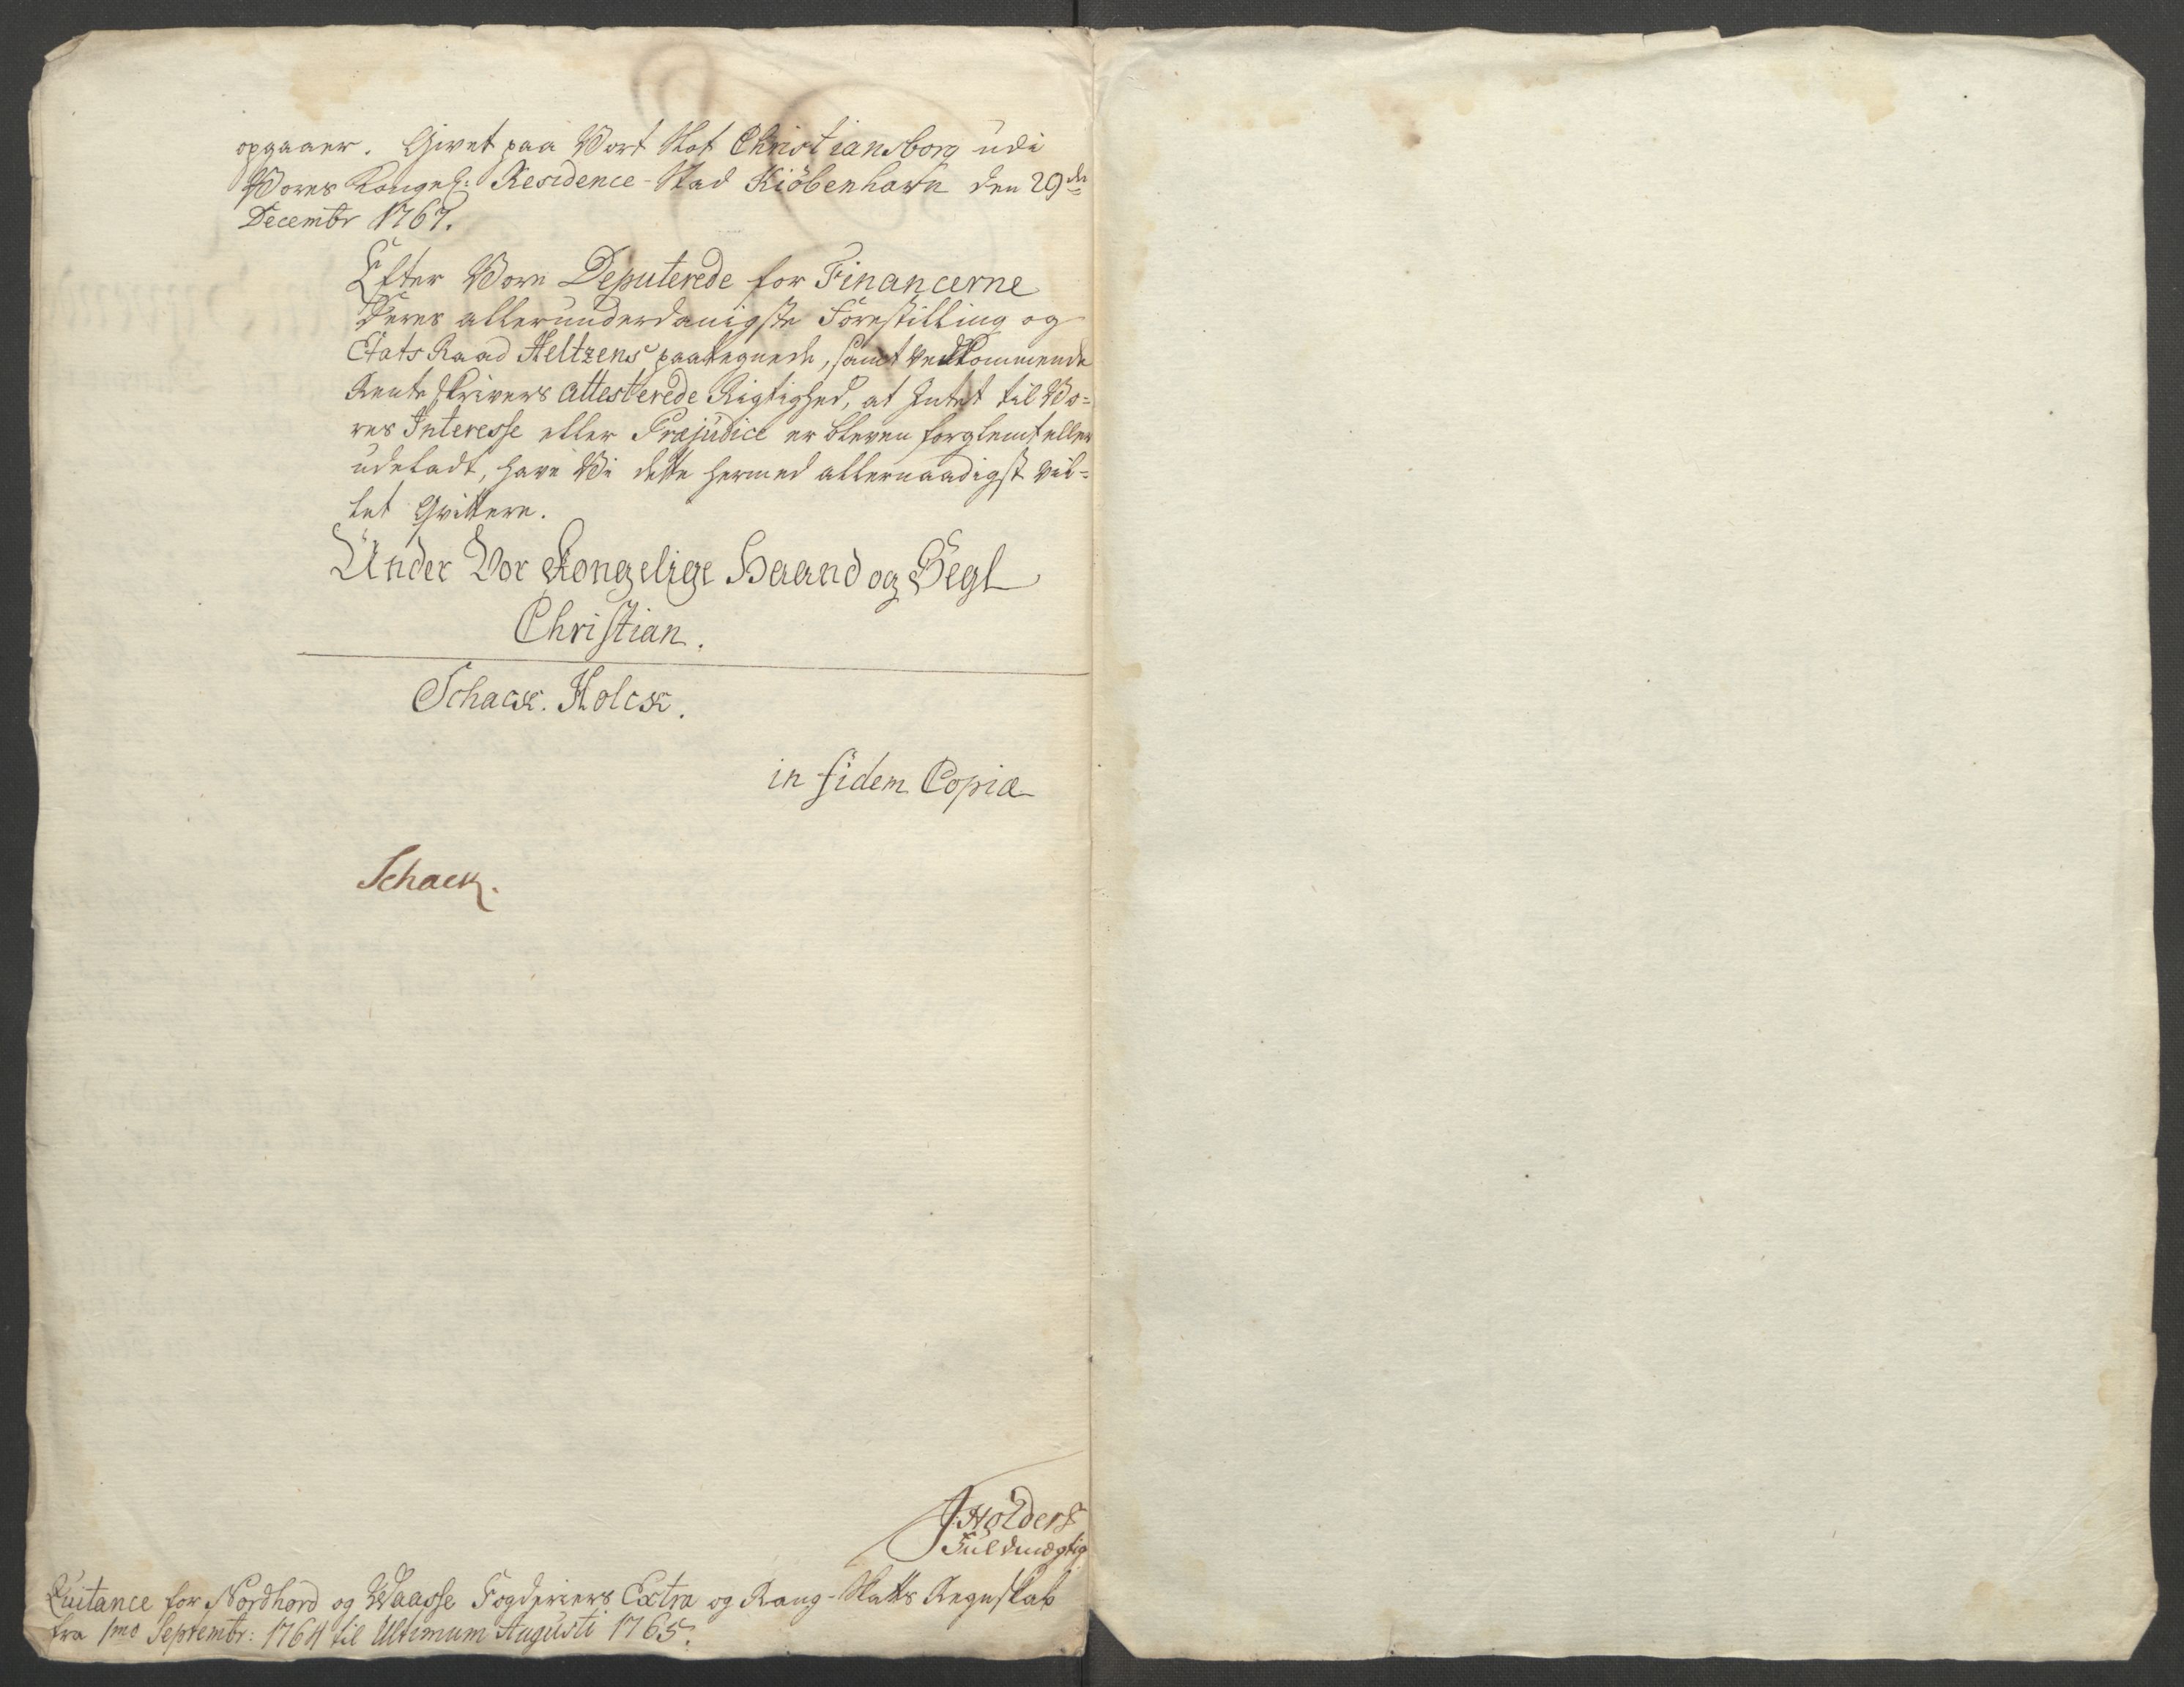 opgaaer. Givet paa Vort Slot Christiansborg udi
Vores Kongel: Residence-Stad Kiöbenhavn den 29de
Decembr 1767.
Efter Vore Deputerede for Financerne
Deres allerunderdanigste Forestilling og
Etats Raad Heltzens paategnede, samt Vedkommende
Renteskrivers attesterede Rigtighed, at Intet til Vo=
res Interesse eller Præjudice er bleven forglemt eller
udeladt, have Vi dette hermed allernaadigst vil=
let Qvittere.
Under Vor Kongelige Haand og Segl
Christian.
Schack. Holck.
in fidem Copiæ
Schack.
J: Holders
Fuldmægtig
Quitance for Nordhord og Waasse Fogderiers Extra og Rang-Skatts Regnskab
fra 1mo Septembr: 1764 til Ultimum Augusti 1765.